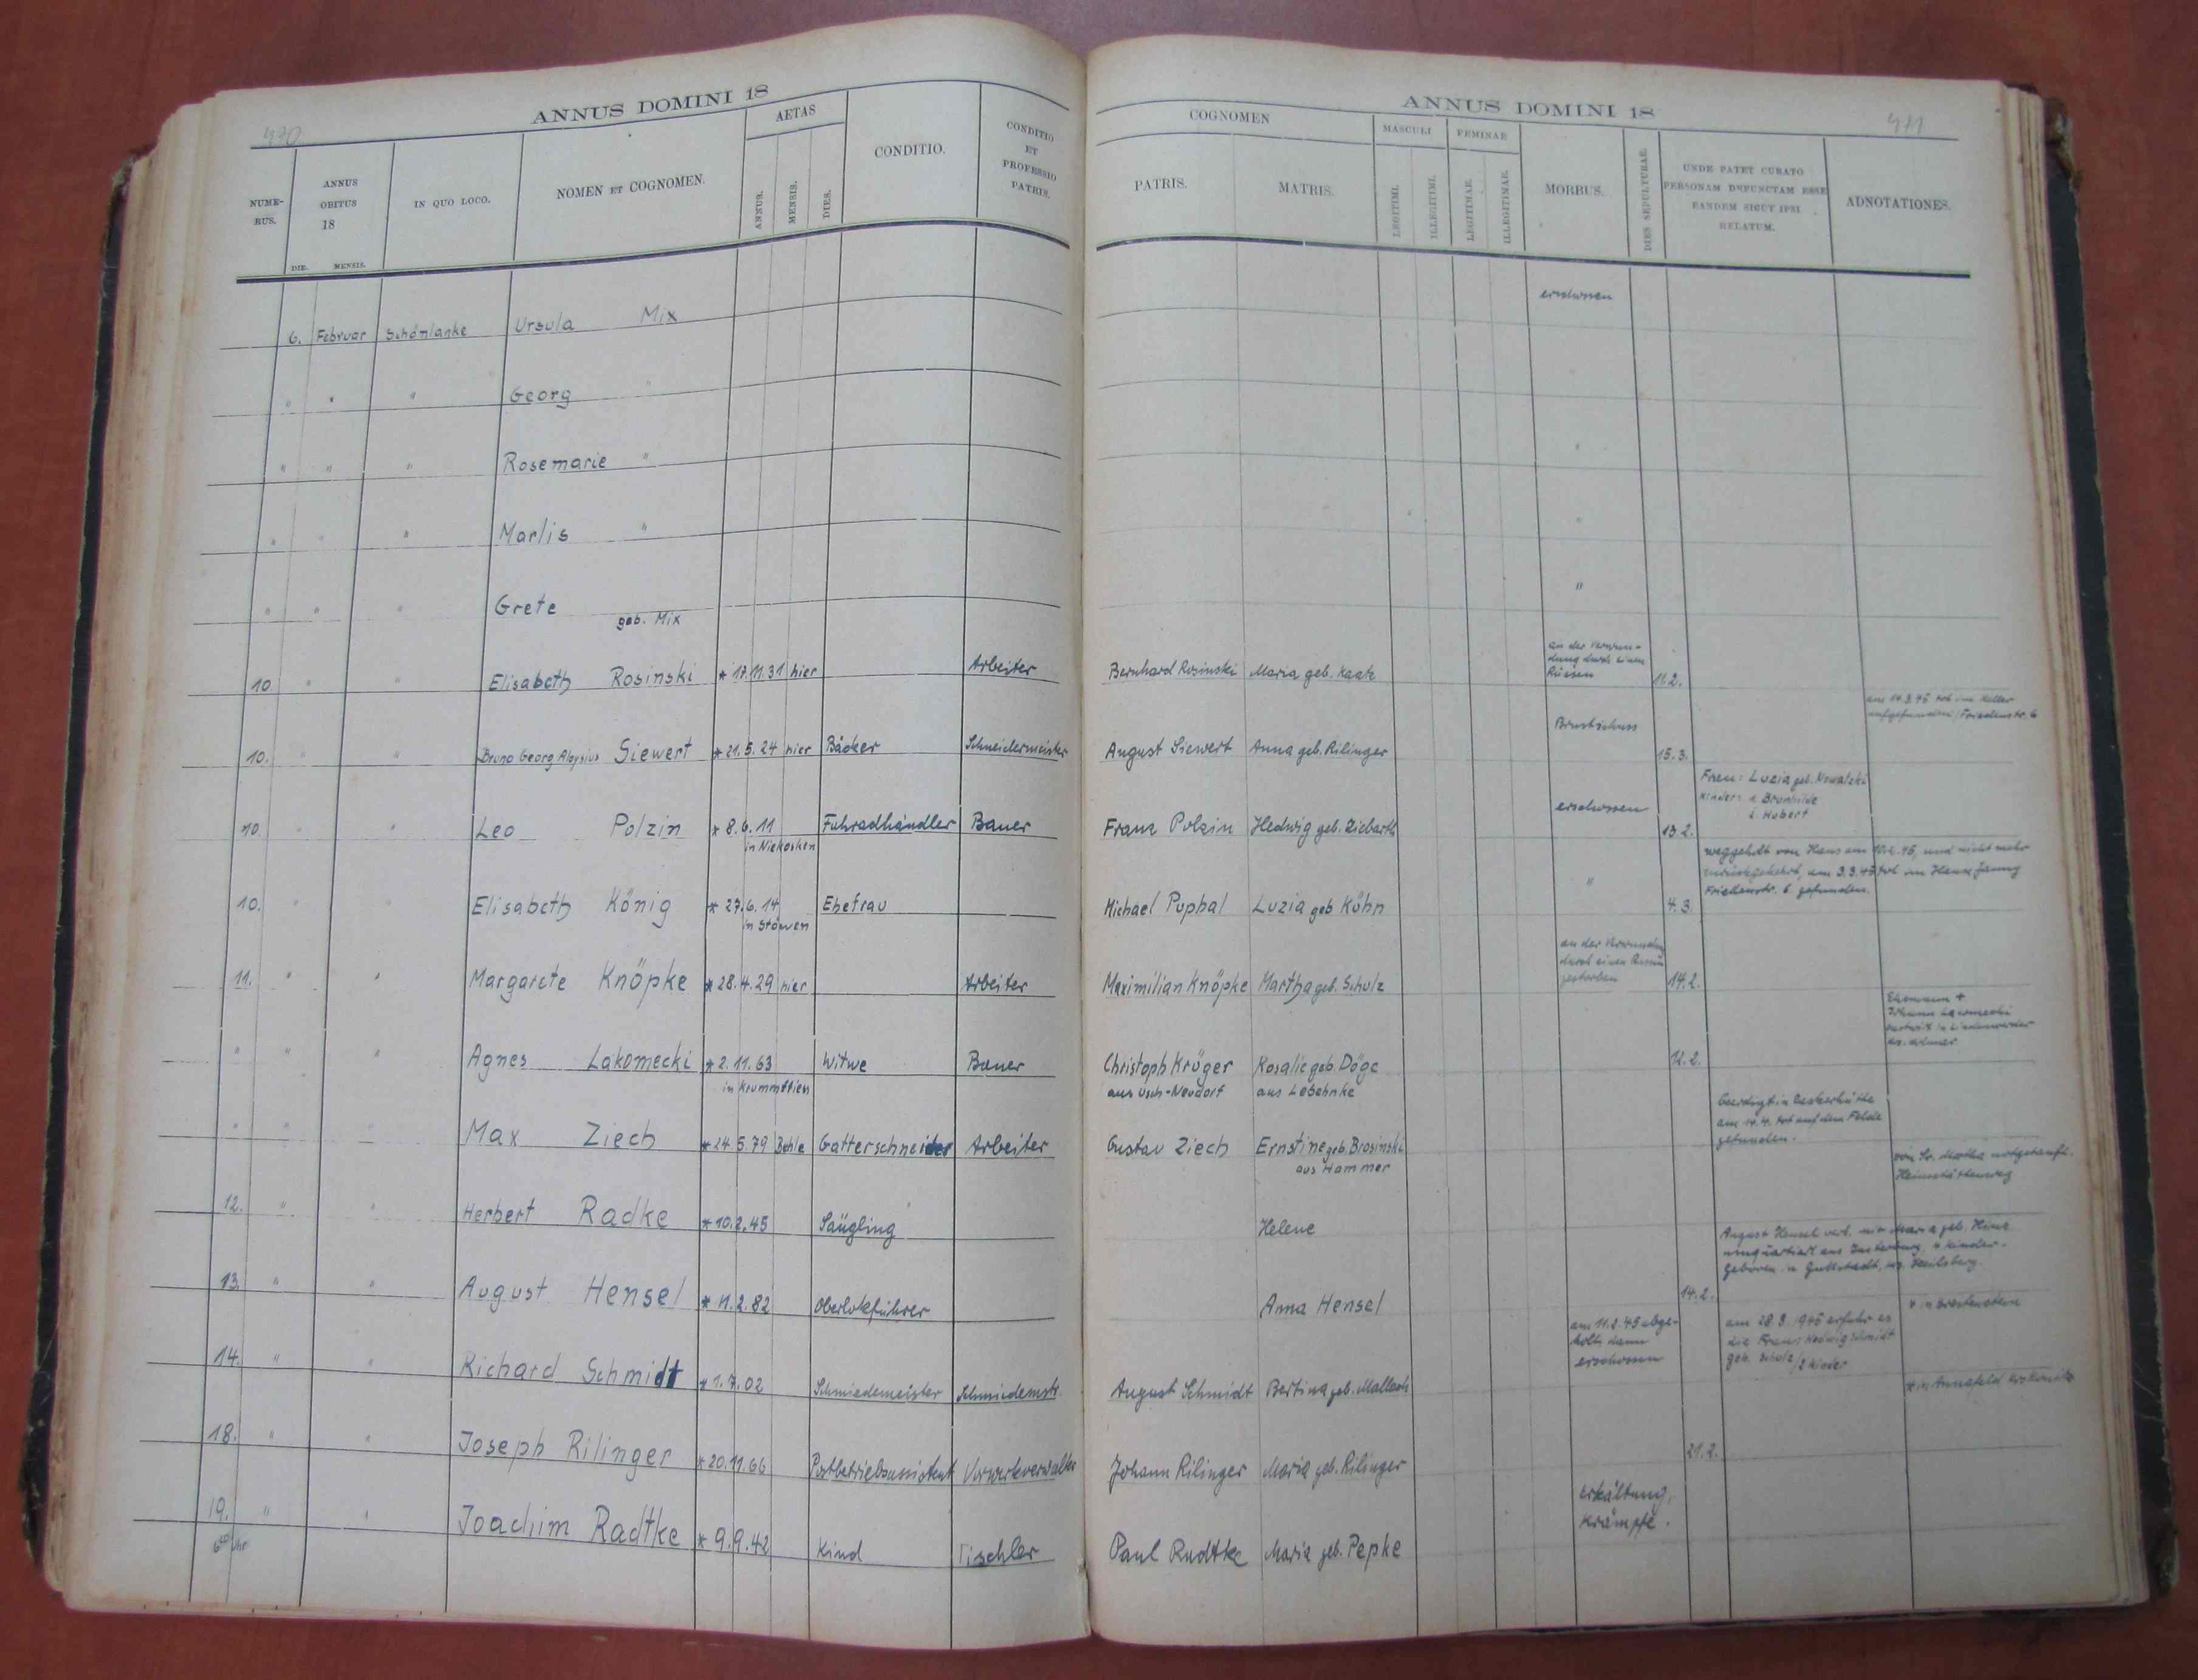 470
ANNUS DOMINI 18
NUME-
RUS.
ANNUS
OBITUS
18
DIE.
MENSIS.
IN QUO LOCO.
NOMEN ET COGNOMEN.
AETAS
ANNUS.
MENSIS.
DIES.
CONDITIO.
CONDITIO
ET
PROFESSIO
PATRIS.
6. Februar Schönlanke Ursula Mix
" " " Georg "
" " " Rosemarie "
" " " Marlis "
" " " Grete
geb. Mix
10 " " Elisabeth Rosinski * 17.11.31 hier Arbeiter
10. " " Bruno Georg Aloysius Siewert * 21.5.24 hier Bäcker Schneidermeister
10. " " Leo Polzin * 8.6.11 Fahradhändler Bauer
in Niekosken
10. " " Elisabeth König * 27.6.14 Ehefrau
in Stöwen
11. " " Margarete Knöpke * 28.4.29 hier Arbeiter
" " " Agnes Lakomecki * 2.11.63 Witwe Bauer
in Krummfließ
" " " Max Ziech * 24 5.79 Behle Gatterschneider Arbeiter
12. " " Herbert Radke * 10.2.45 Säugling
13. " " August Hensel * 11.2.82 Oberlokführer
14. " " Richard Schmidt * 1.7.02 Schmiedemeister Schmiedemstr.
18. " " Joseph Rilinger * 20.11.66 Postbetriebsassistent Vorwerkverwalter
19. " " Joachim Radtke * 9.9.42 Kind Tischler
6 Uhr
ANNUS DOMINI 18
471
COGNOMEN
PATRIS.
MATRIS.
MASCULI
LEGITIMI.
ILLEGITIMI.
FEMINAE
LEGITINAE.
ILLEGITINAE.
MORBUS.
DIES SEPULTURAE.
UNDE PATET CURATO
PERSONAM DEFUNCTAM ESSE
EANDEM SICUT IPSI
RELATUM.
ADNOTATIONES.
erschossen
"
"
"
an der Verwun-
dung durch einen
Russen
Bernhard Rosinski Maria geb. Kaatz 11.2.
am 14.3.45 tot im Keller
aufgefunden/Friedenstr. 6
Brustschuss
August Siewert Anna geb. Rilinger 15.3.
Frau: Luzia geb. Nowatzki
Kinder: a Brunhilde
Hubert
erschossen
Franz Polzin Hedwig geb. Ziebarth 13 2.
weggeholt von Haus am 10.2.45, und nicht mehr
zurückgekehrt, am 3.3.45 tot im Hause
Friedenstr. 6 gefunden.
"
Michael Puphal Luzia geb Kühn 4.3.
an der Verwundung
durch einen Russen
gestorben
Maximilian Knöpke Martha geb. Schulz 14.2.
Ehemann +
Johann Lakomecki
Christoph Krüger Rosalie geb. Döge 12.2.
aus Usch-Neudorf aus Lebehnke
beerdigt in
am 14.4. tot auf dem Felde
gefunden.
Gustav Ziech Ernstine geb. Brosinski
aus Hammer
von Sr. Martha notgetauft.
Heimstättenweg
Helene
August Hensel verh. mit Maria geb.
aus Insterburg, 4 Kinder.
geboren in Guttstadt, Heilsberg.
Anna Hensel 14.2.
am 11.2.45 abge-
holt, dann
erschossen
am 28.3.1945 erfuhr es
die Frau: Hedwig Schmidt
geb. Schulz / 2 Kinder
August Schmidt Bertina geb. Mallach
* in Annafeld
Johann Rilinger Maria geb. Rilinger 21.2.
Erkältung,
Krämpfe.
Paul Radtke Maria geb. Pepke